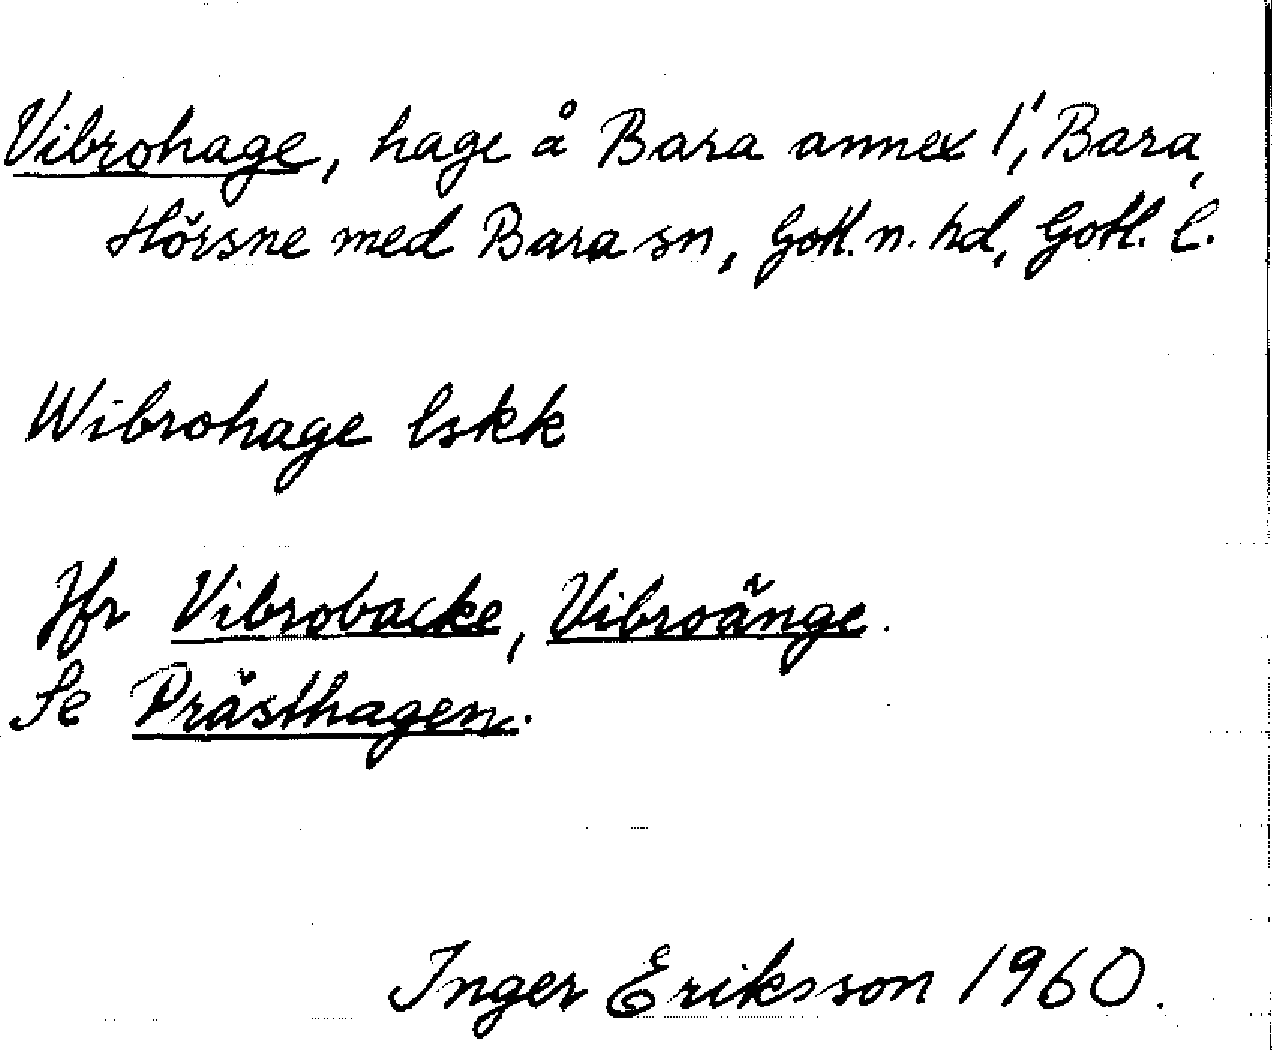 Vibrohage, hage å Bara annex 1', Bara,
Hörsne med Bara sn, Gotl. n. hd, Gotl. l.
Wibrohage lskk
Jfr Vibrobacke, Vibroänge.
Se Prästhagen.
Inger Eriksson 1960.